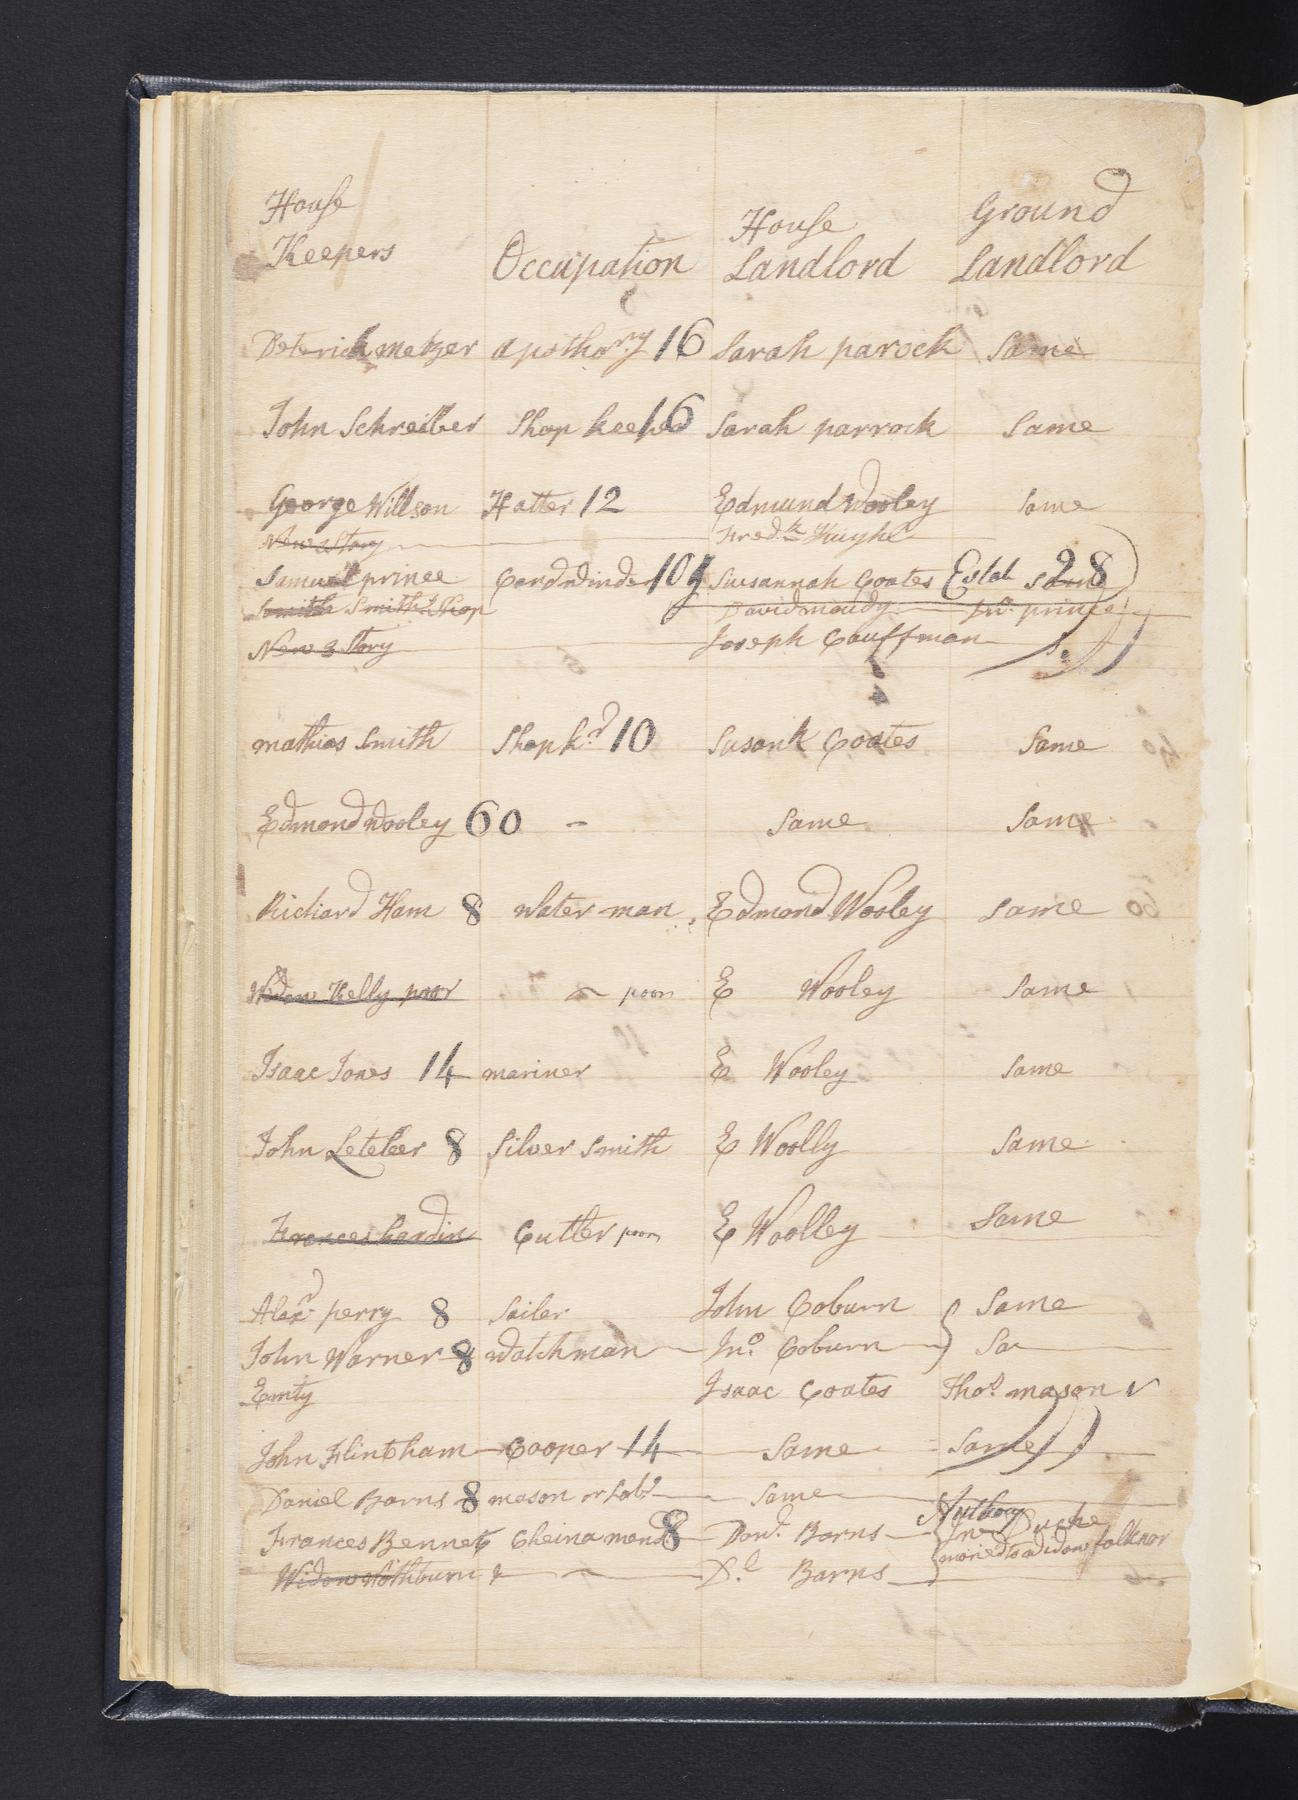 House Keepers Occupation House Landlord Ground Landlord
Deterich metzer apothary 16 Sarah parock Same
John Schreiber Shop keeper 16 Sarah parrock Same
George Willson Hatter 12 Edmund Wooley Same
New 3 Story Fredk
Samuel prince Cardwinder 10 Susannah Coates Estat Same 28
Smith Smiths Shop David moudy Jno. prince
New 3 Story Joseph Cauffman
mathias Smith Shopkr 10 Susank Coates Same
Edmond Wooley 60 - Same Same
Richard Ham 8 Water man Edmond Wooley Same
Widow Kelly poor poor E Wooley Same
Isaac Jones 14 mariner E Wooley Same
John Leteleer 8 Silver Smith E Woolly Same
Frances hardin Cutler poor E Woolley Same
Alexr perry 8 Sailer John Coburn Same
John Warner 8 Watchman Jno. Coburn Sa
Emty Isaac Coates Thos mason
John Flintham Cooper 14 Same Same
Daniel Barns 8 mason or Labr Same
Frances Bennet Cheinamendr 8 Danl. Barns Anthony Duche
maried to widow falkner
Widow D.l Barns